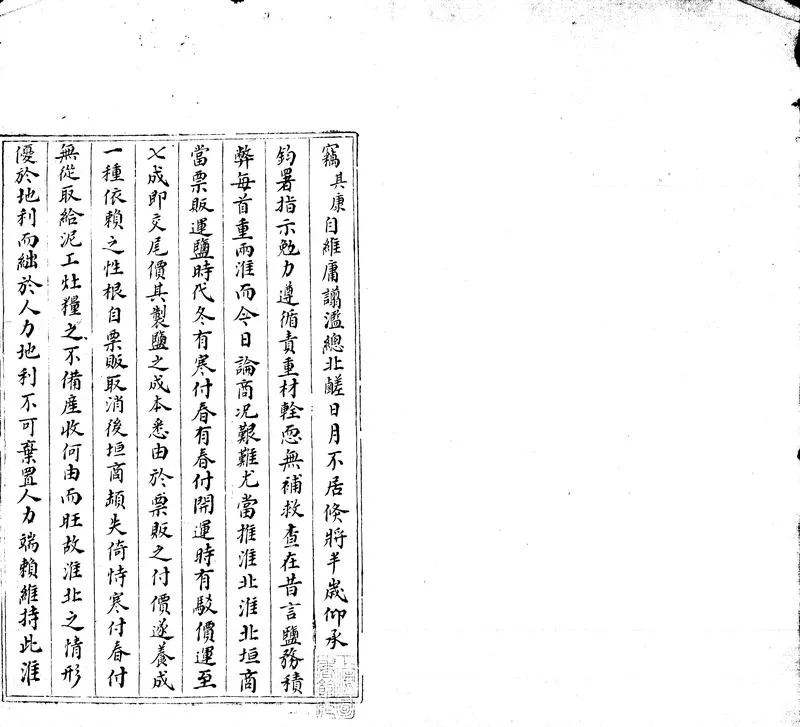 竊其康自維庸譾濫總北鹺日月不居倏將半歲仰承
鈞署指示勉力遵循責重材輇恧無補救查在昔言鹽務積
弊每首重兩淮而今日論商况艱難尤當推淮北淮北垣商
當票販運鹽時代冬有寒付春有春付開運時有駁價運至
七成即交尾價其製鹽之成本悉由於票販之付價遂養成
一種依賴之性根自票販取消後垣商頓失倚恃寒付春付
無從取給泥工灶糧之不備産收何由而旺故淮北之情形
優於地利而絀於人力地利不可棄置人力端賴維持此淮